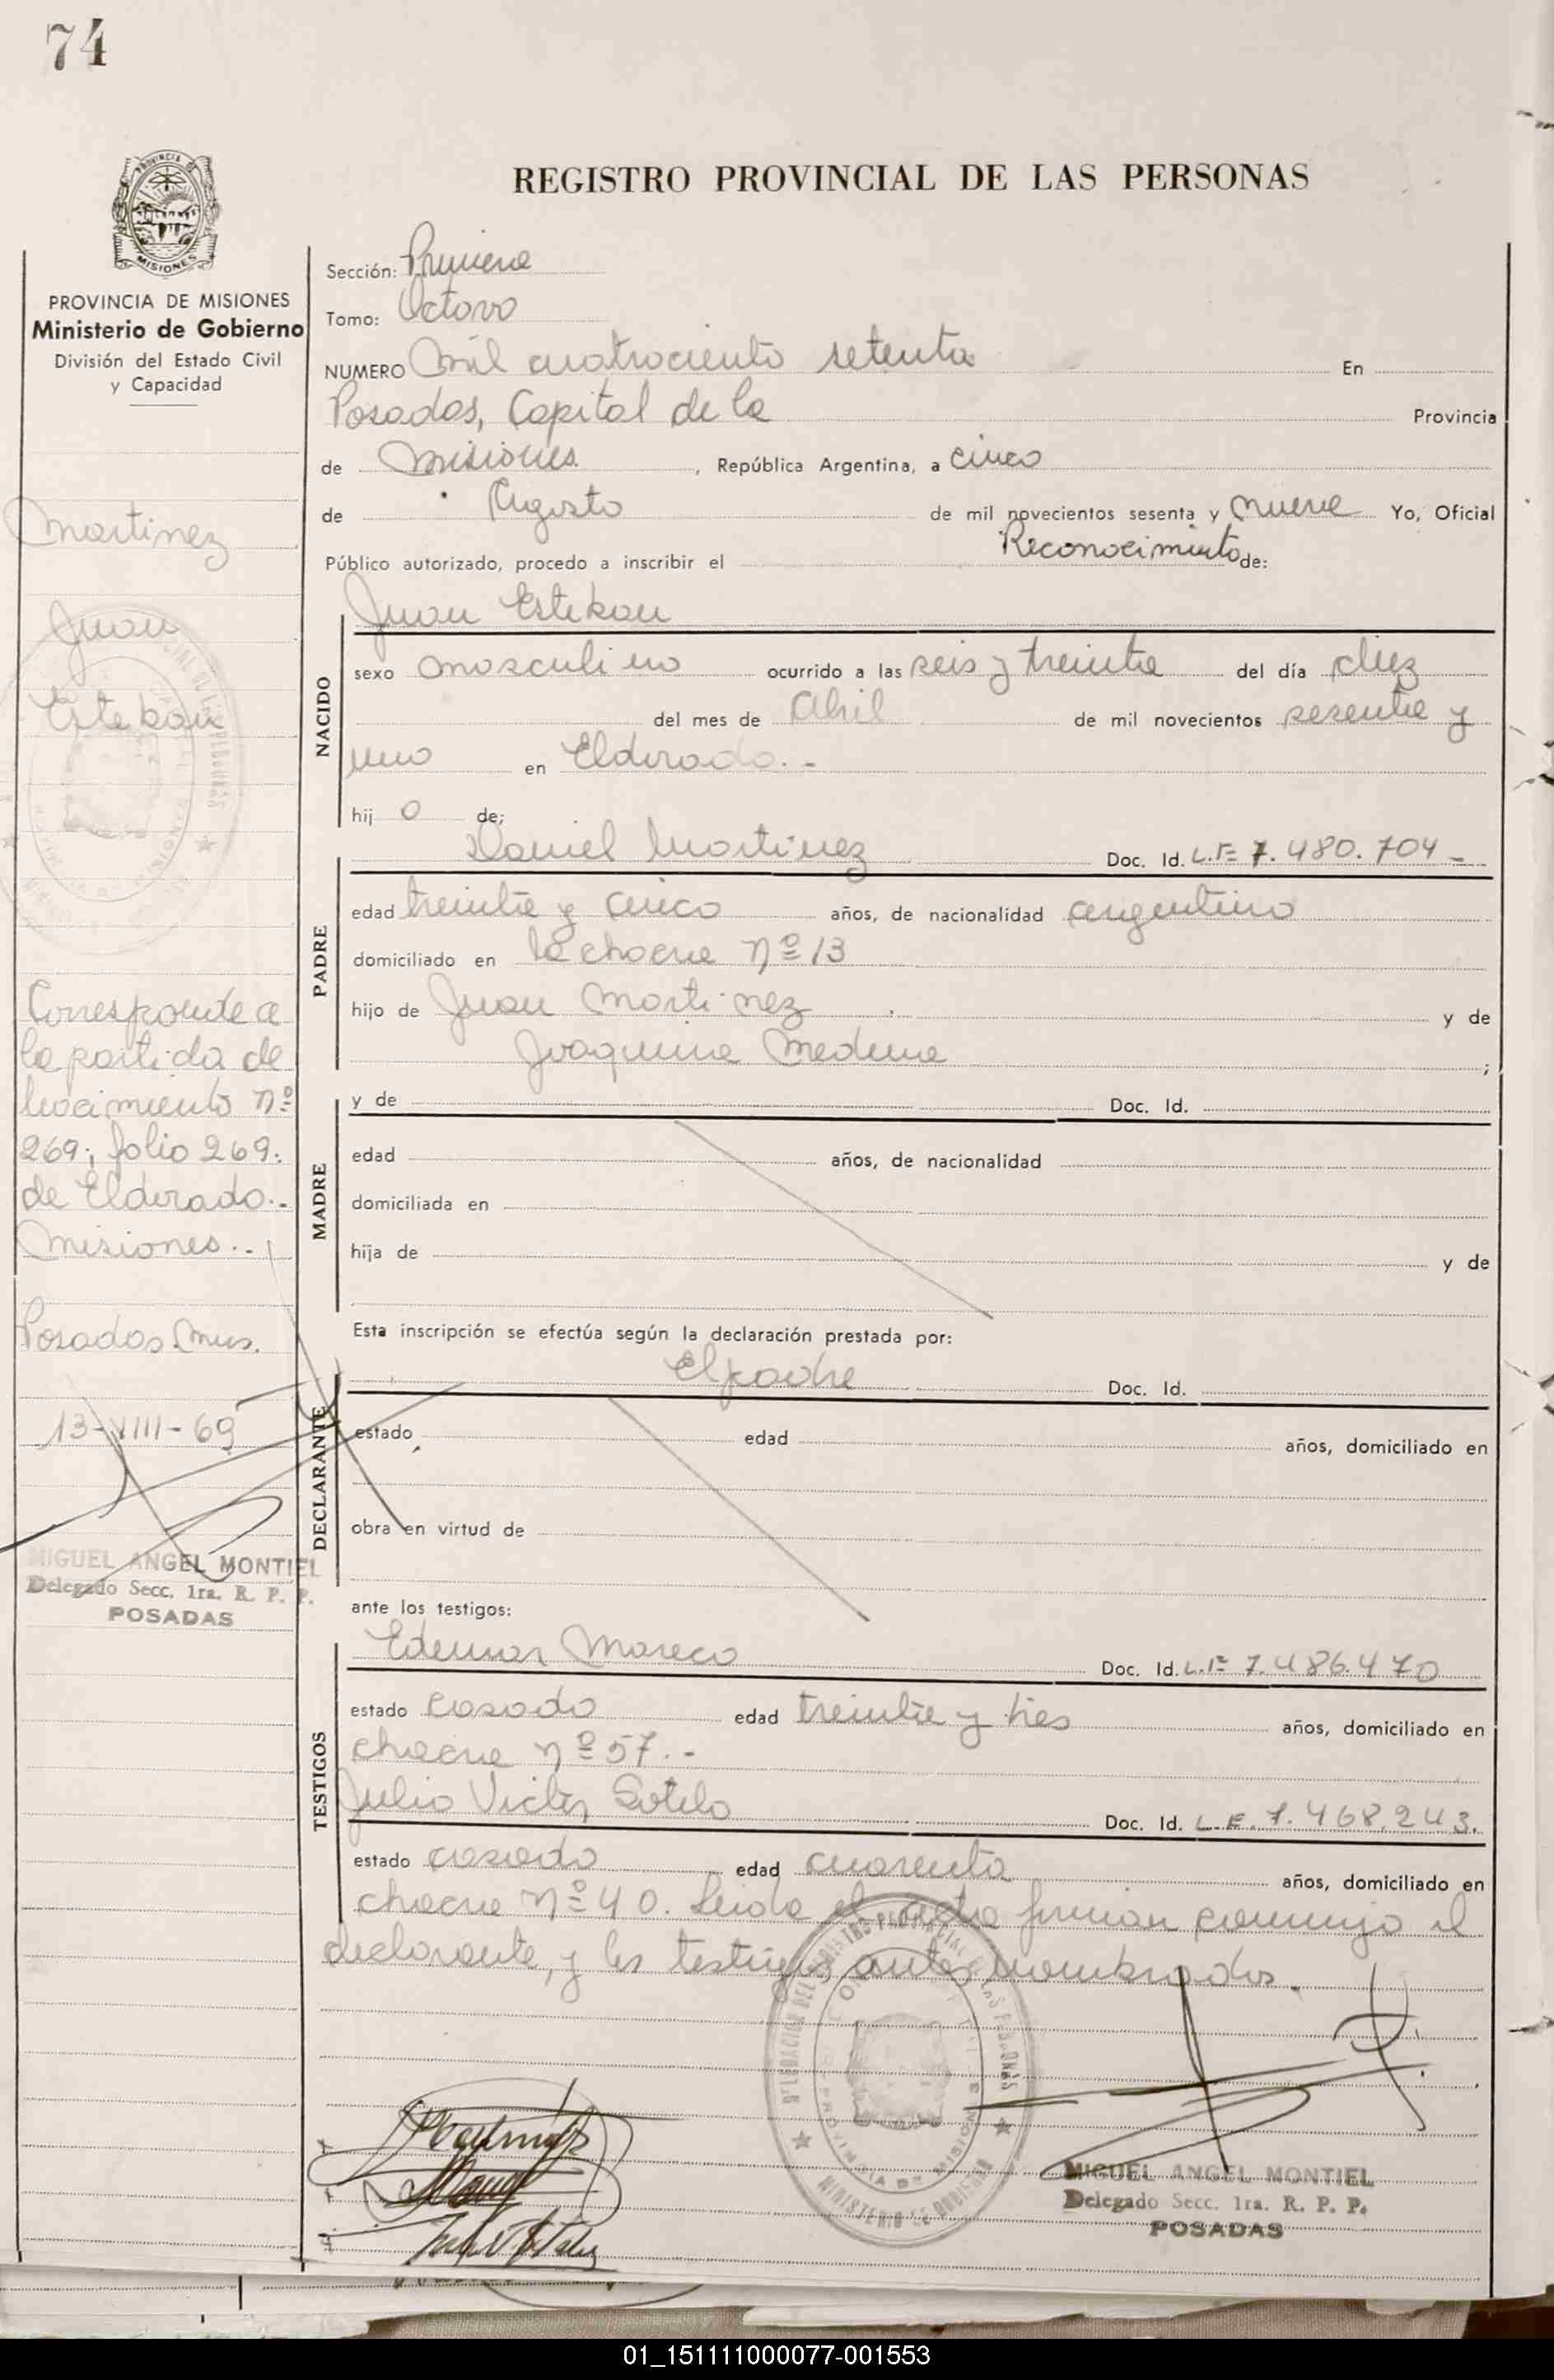 74
REGISTRO PROVINCIAL DE LAS PERSONAS
PROVINCIA DE MISIONES
Ministerio de Gobierno
División del Estado Civil
y Capacidad
Martinez
Juan
Esteban
Corresponde a
la partida de
Nacimiento Nº
269; folio 269.
de Eldorado.-
Misiones..
Posadas Mnes.
13-VIII-69
MIGUEL ANGEL MONTIEL
Delegado Secc. 1ra. R. P. P.
POSADAS
Sección: Primera
Tomo: Octavo
NUMERO Mil cuatrociento setenta En
Posadas, Capital de la Provincia
de Misiones, República Argentina, a cinco
de Agosto de mil novecientos sesenta y nueve Yo, Oficial
Público autorizado, procedo a inscribir el Reconocimiento de:
NACIDO
Juan Esteban
sexo masculino ocurrido a las seis y treinta del día diez
del mes de Abril de mil novecientos sesenta y
uno en Eldorado.-
hij o de;
PADRE
Daniel Martinez Doc. Id. L.E= 7.480.704-
edad treinta y cinco años, de nacionalidad argentino
domiciliado en la chacra Nº 13
hijo de Juan Martinez y de
Joaquina Medina ;
MADRE
y de Doc. Id.
edad años, de nacionalidad
domiciliada en
hija de y de
Esta inscripción se efectúa según la declaración prestada por:
DECLARANTE
El padre Doc. Id.
estado edad años, domiciliado en
obra en virtud de
ante los testigos:
TESTIGOS
Edemar Mareco Doc. Id. L.E= 7.486.470
estado casado edad treinta y tres años, domiciliado en
chacra Nº 57.-
Julio Victor Sotelo Doc. Id. L.E. 7.468.243.
estado casado edad cuarenta años, domiciliado en
chacra Nº 40. Leida el acta firman conmigo el
declarante, y los testigos antes nombrados.
MIGUEL ANGEL MONTIEL
Delegado Secc. 1ra. R. P. P.
POSADAS
01_151111000077-001553